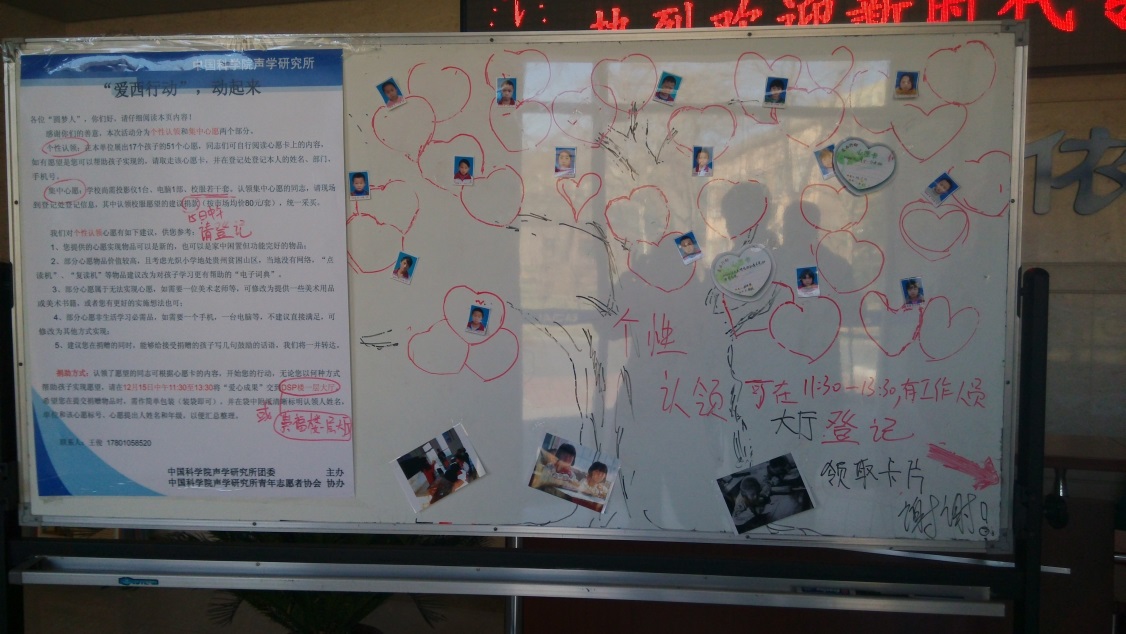 热烈欢迎新时代
中国科学院声学研究所
“爱西行动”，动起来
各位“圆梦人”，你们好，请仔细阅读本页内容！
感谢你们的善意，本次活动分为个性认领和集中心愿两个部分。
个性认领：在本单位展出17个孩子的51个心愿，同志们可自行阅读心愿卡上的内容，
如有愿望是您可以帮助孩子实现的，请取走该心愿卡，并在登记处登记本人的姓名、部门、
手机号。
集中心愿：学校尚需投影仪1台、电脑1部、校服若干套，认领集中心愿的同志，请现场
到登记处登记信息，其中认领校服愿望的建议捐款（按市场均价80元/套），统一采买。
请登记
我们对个性认领心愿有如下建议，供您参考：
1、您提供的心愿实现物品可以是新的，也可以是家中闲置但功能完好的物品；
2、部分心愿物品价值较高，且考虑光织小学地处贵州贫困山区，当地没有网络，“点
读机”、“复读机”等物品建议改为对孩子学习更有帮助的“电子词典”。
3、部分心愿属于无法实现心愿，如需要一位美术老师等，可修改为提供一些美术用品
或美术书籍，或者您有更好的实施想法也可；
4、部分心愿非生活学习必需品，如需要一个手机，一台电脑等，不建议直接满足，可
修改为其他方式实现；
5、建议您在捐赠的同时，能够给接受捐赠的孩子写几句鼓励的话语，我们将一并转达。
捐助方式：认领了愿望的同志可根据心愿卡的内容，开始您的行动，无论您以何种方式
帮助孩子实现愿望，请在12月15日中午11:30至13:30将“爱心成果”交到DSP楼一层大厅，
希望您在提交捐赠物品时，需作简单包装（袋装即可），并在袋中附
单位和该心愿标号、心愿提出人姓名和年级，以便汇总整理。
或
联系人：王俊 17801058520
中国科学院声学研究所团委 主办
中国科学院声学研究所青年志愿者协会 协办
个性
认领 可在11:30—13:30,有工作人员
大厅登记
领取卡片
谢谢!
依